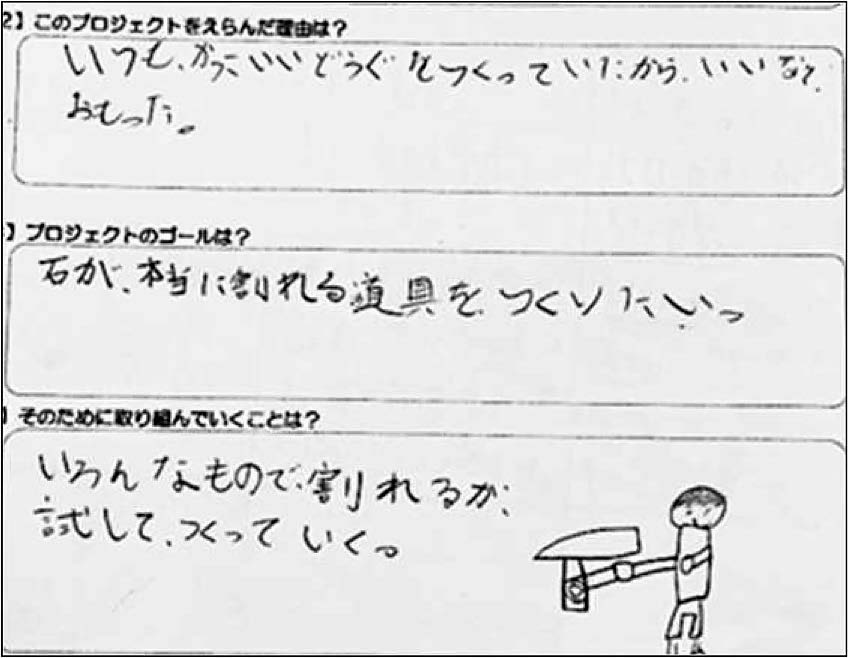 2】このプロジェクトをえらんだ理由は？
いつも、かっこいいどうぐをつくっていたから、いいなと、
おもった。
】プロジェクトのゴールは？
石が、本当に割れる道具を、つくりたい。
】そのために取り組んでいくことは？
いろんなもので、割れるか、
試して、つくっていく。